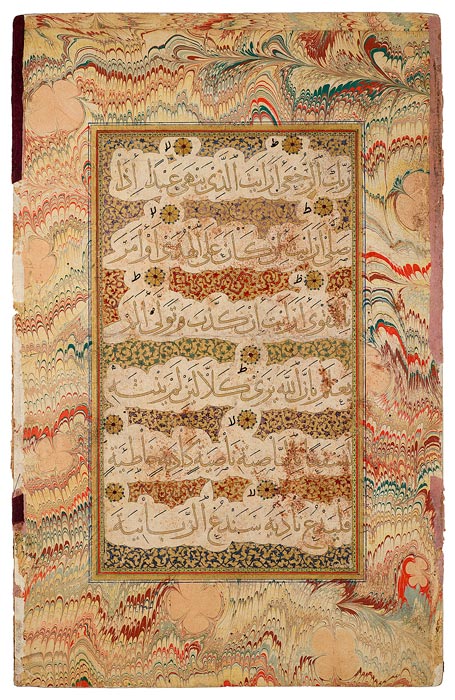 ربك الرجعى ارايت الذى ينهى عبدا اذا
صلى ارايت ان كان على الهدى او امر
بالتقوى ارايت ان كذب وتولى الم
يعلم بان الله يرى كلا لئن لم ينته
لنسفعا بالناصية ناصية كاذبة خاطئة
فليدع ناديه سندع الزبانية